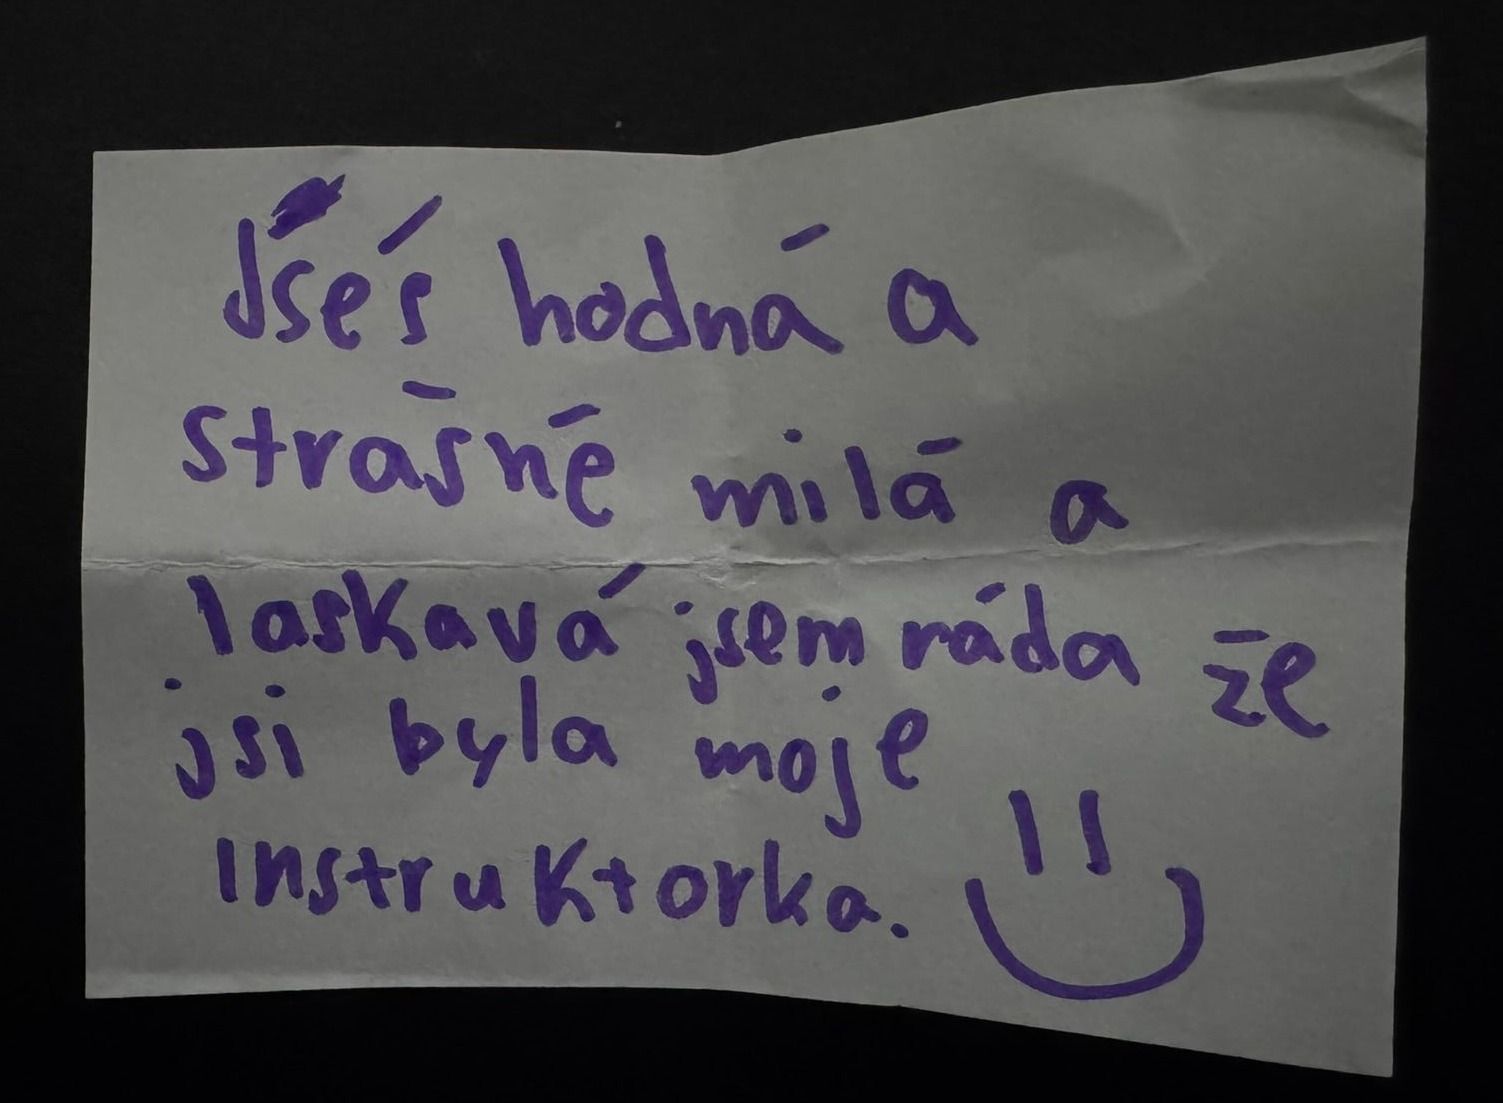 Jseś hodná a
strašně milá a
laskavá jsem ráda že
jsi byla moje
instruktorka.